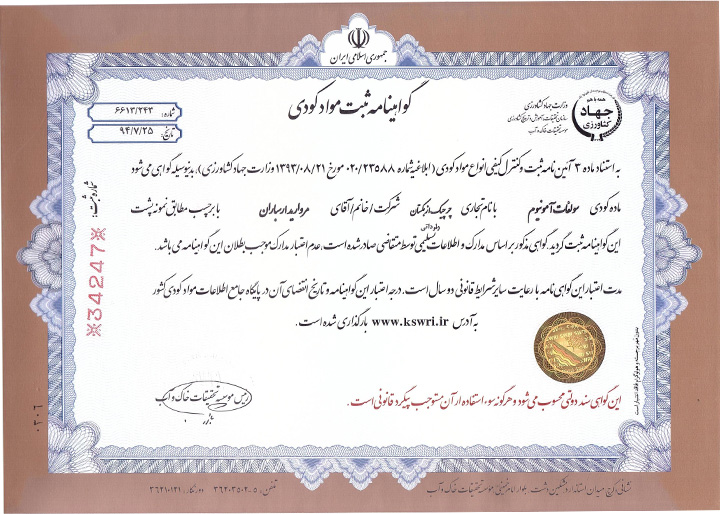 جمهوری اسلامی ایران
گواهینامه ثبت مواد کودی
همه با هم
جهاد
کشاورزی
وزارت جهاد کشاورزی
سازمان تحقیقات، آموزش و ترویج کشاورزی
موسسه تحقیقات خاک و آب
شماره: ۶۶۱۳/۲۴۳
تاریخ: ۹۴/۷/۲۵
به استناد ماده ۳ آئین نامه ثبت و کنترل کیفی انواع مواد کودی (ابلاغیه شماره ۰۲۰/۲۳۵۸۸ مورخ ۱۳۹۳/۰۸/۲۱ وزارت جهاد کشاورزی)، بدینوسیله گواهی می‌شود
ماده کودی سولفات آمونیوم با نام تجاری چرچیک ازبکستان شرکت / خانم / آقای مروارید ارباران با برچسب مطابق نمونه پشت
این گواهینامه ثبت گردید. گواهی مذکور بر اساس مدارک و اطلاعات تسلیمی توسط متقاضی صادر شده است، عدم اعتبار مدارک موجب بطلان این گواهینامه می باشد.
مدت اعتبار این گواهی نامه با رعایت سایر شرایط قانونی دو سال است. درجه اعتبار این گواهینامه و تاریخ انقضای آن در پایگاه جامع اطلاعات مواد کودی کشور
به آدرس www.kswri.ir بارگذاری شده است.
شماره ثبت:
※34247※
رئیس موسسه تحقیقات خاک و آب
بدون مهر برجسته و هولوگرام فاقد اعتبار است
این گواهی سند دولتی محسوب می شود و هرگونه سوء استفاده از آن مستوجب پیگرد قانونی است.
نشانی: کرج، میدان استاندارد، مشکین دشت، بلوار امام خمینی، موسسه تحقیقات خاک و آب تلفن: ۵-۳۶۲۰۳۵۰۲ دورنگار: ۳۶۲۱۰۱۲۱
۰۳۰۶